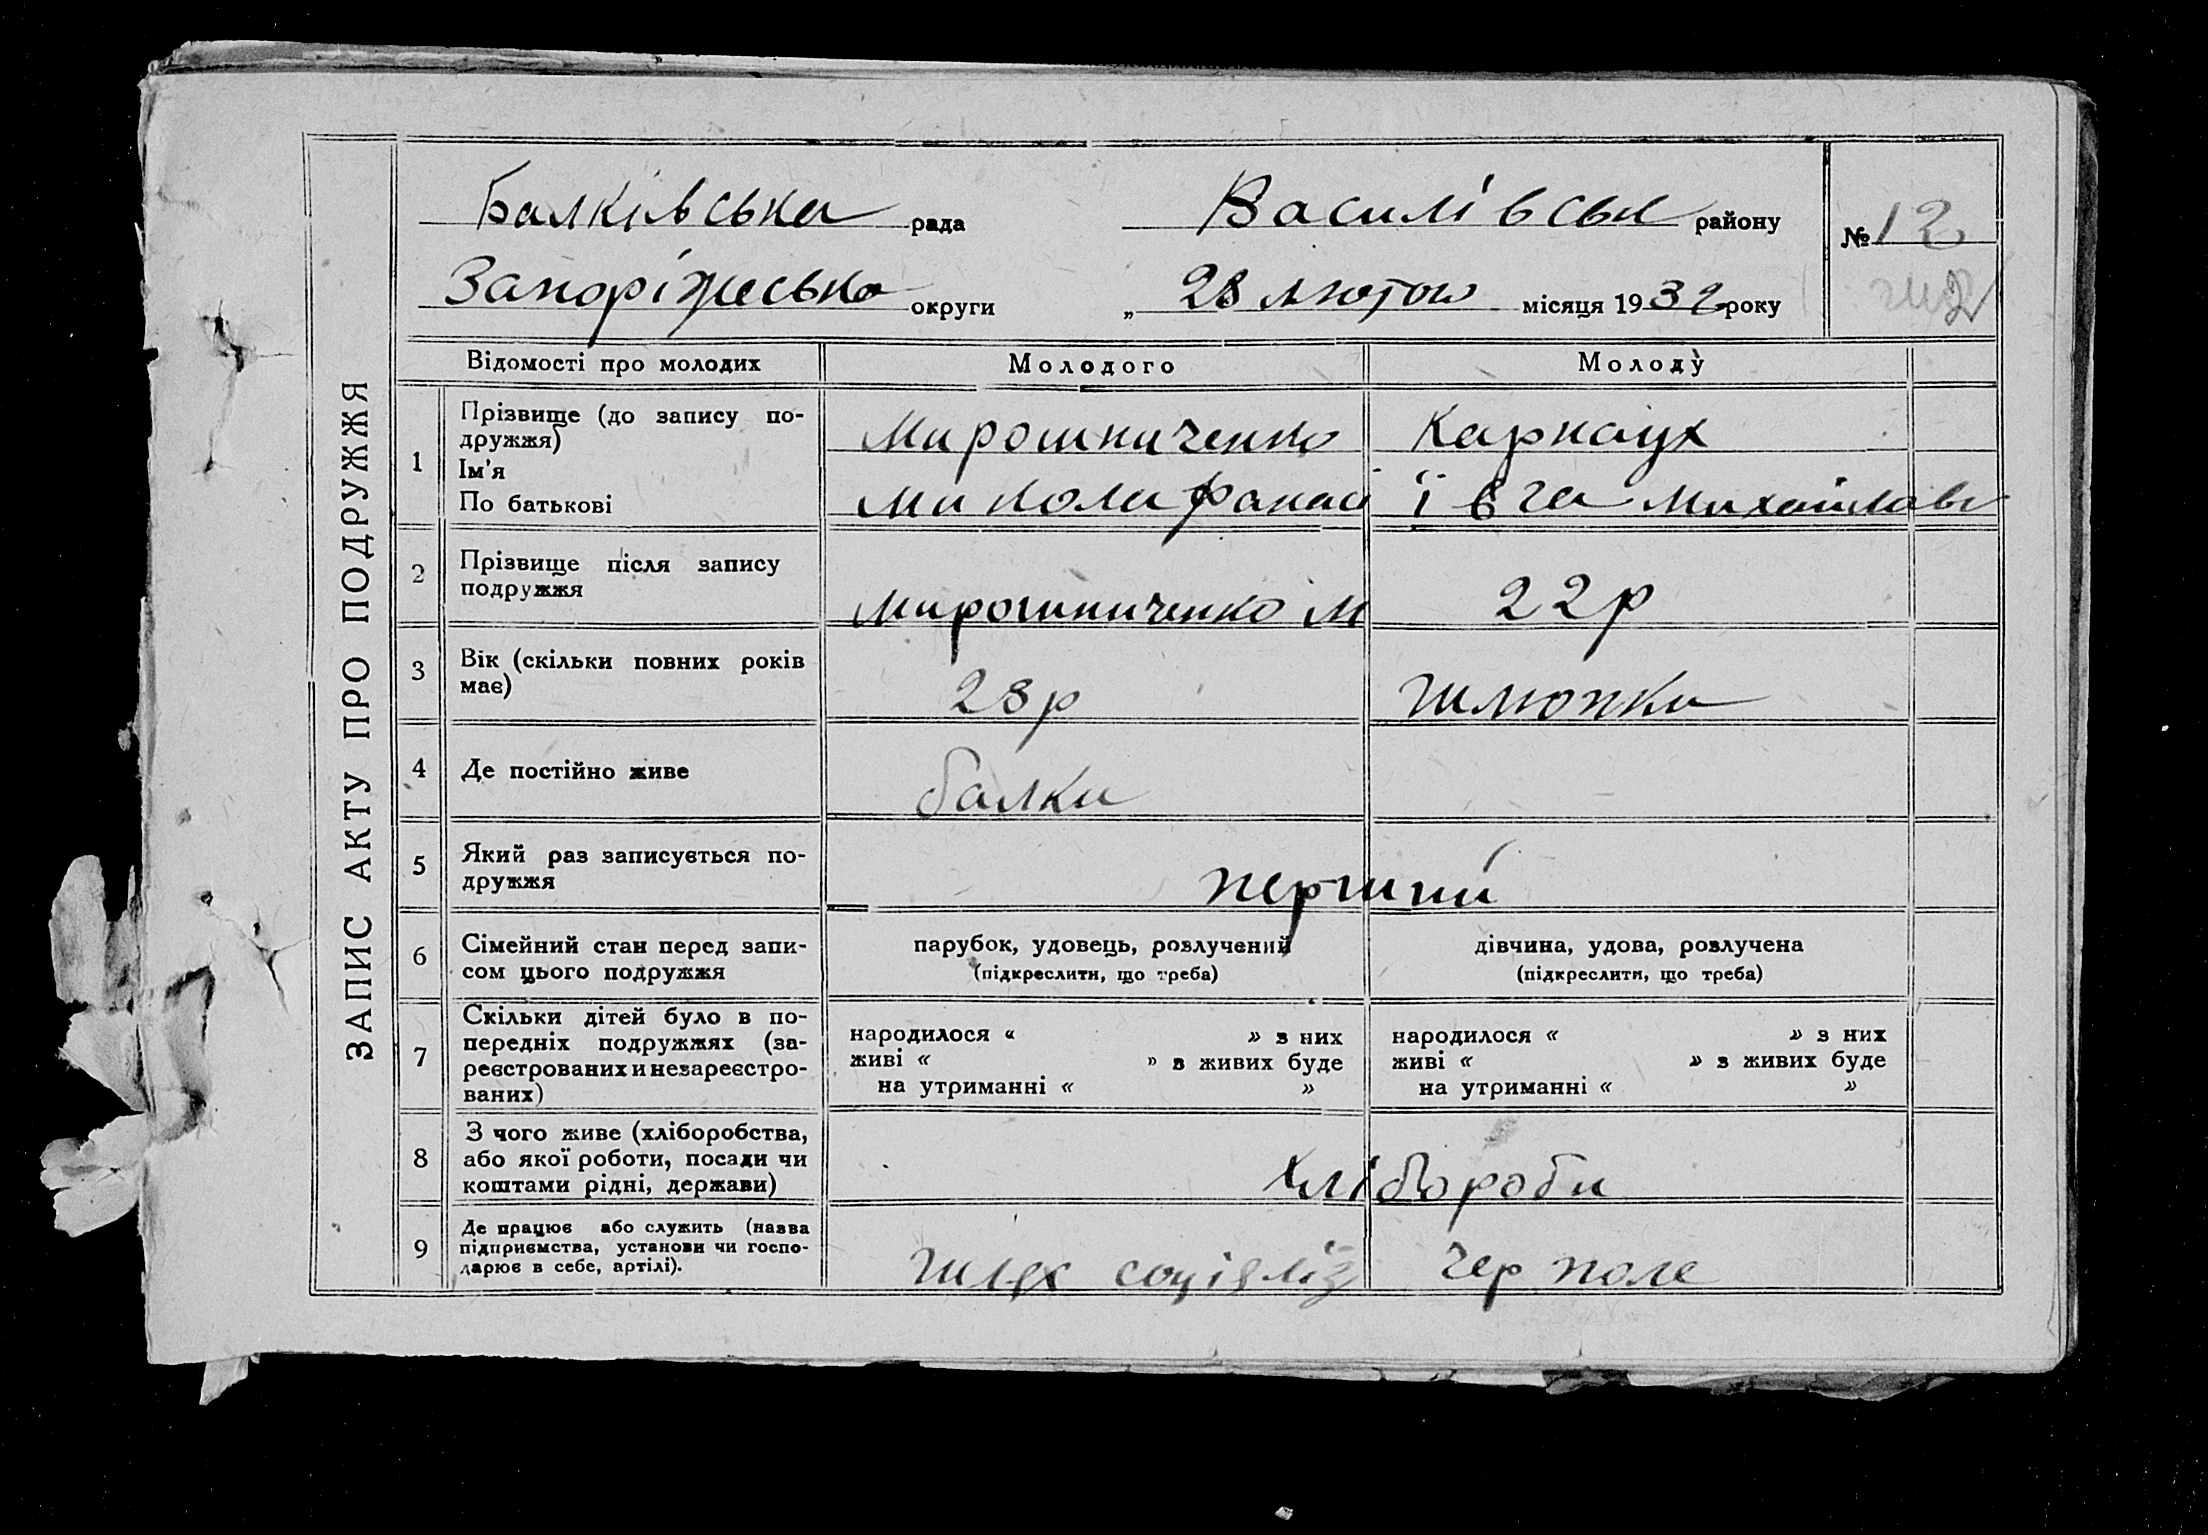 ЗАПИС АКТУ ПРО ПОДРУЖЖЯ
Балківська рада Василівськ району № 12
Запоріжська округи „ 28 лютого місяця 1932 року
Відомості про молодих Молодого Молоду̀
1 Прізвище (до запису по-
дружжя) Мирошниченко Карнаух
Ім'я
По батькові Микола фанас ївга Михайлов
2 Прізвище після запису
подружжя Мирошниченко М 22 р
3 Вік (скільки повних років
має) 28 р шлюжки
4 Де постійно живе балки
5 Який раз записується по-
дружжя перший
6 Сімейний стан перед запи-
сом цього подружжя
парубок, удовець, розлучений
(підкреслити, що треба)
дівчина, удова, розлучена
(підкреслити, що треба)
7 Скільки дітей було в по-
передніх подружжях (за-
реєстрованих и незареєстро-
ваних)
народилося « » з них
живі « » з живих буде
на утриманні « »
народилося « » з них
живі « » з живих буде
на утриманні « »
8 З чого живе (хліборобства,
або якої роботи, посади чи
коштами рідні, держави) хлібороби
9 Де працює або служить (назва
підприємства, установи чи госпо-
дарює в себе, артілі). шлях соціяліз чер поле